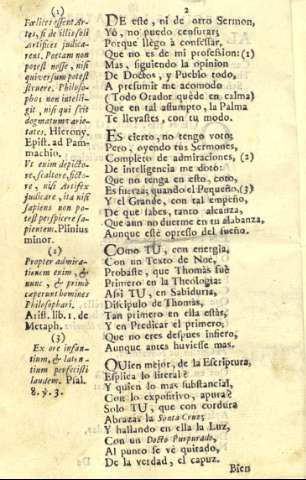 2
(1)
Fœlices essent Ar-
tes, si de illis soli
Artifices judica-
rent. Poetam non
potest nosse, nisi
qui versum potest
struere. Philoso-
phos non intelli-
git, nisi qui scit
dogmatum varie-
tates. Hierony.
Epist. ad Pam-
machio.
Ut enim de pictore,
sculptore, ficto-
re, nisi Artifex
judicare, ita nisi
sapiens non po-
test perspicere sa-
pientem. Plinius
minor.
(2)
Propter admira-
tionem enim, &
nunc, & primò
cæperunt homines
Philosophari.
Arist. lib. 1. de
Metaph.
(3)
Ex ore infan-
tium, & lacten-
tium perfecisti
laudem. Psal.
8. ỳ. 3.
DE este, ni de otro Sermon,
Yo, no puedo censurar;
Porque llego à confessar,
Que no es de mi profession:(1)
Mas, siguiendo la opinion
De Doctos, y Pueblo todo,
A presumir me acomodo
(Todo Orador quède en calma)
Que en tal assumpto, la Palma
Te llevastes, con tu modo.
ES cierto, no tengo voto;
Pero, oyendo tus Sermones,
Completo de admiraciones, (2)
De inteligencia me doto:
Que no tenga en esto, coto,
Es fuerza; quando el Pequeño,(3)
Y el Grande, con tal empeño,
De que sabes, tanto alcanza,
Que aun no duerme en tu alabanza,
Aunque este opresso del sueño.
COmo TU, con energia,
Con un Texto de Noè,
Probaste, que Thomàs fuè
Primero en la Theologia:
Assi TU, en Sabiduria,
Discipulo de Thomàs,
Tan primero en ella estàs,
Y en Predicar el primero;
Que no eres despues infiero,
Aunque antes huviesse mas.
QUien mejor, de la Escriptura,
Esplica lo literal?
Y quien lo mas substancial,
Con lo expositivo, apura?
Solo TU, que con cordura
Abrazas la Santa Cruz;
Y hallando en ella la Luz,
Con un Docto Purpurado,
Al punto se vè quitado,
De la verdad, el capuz.
Bien